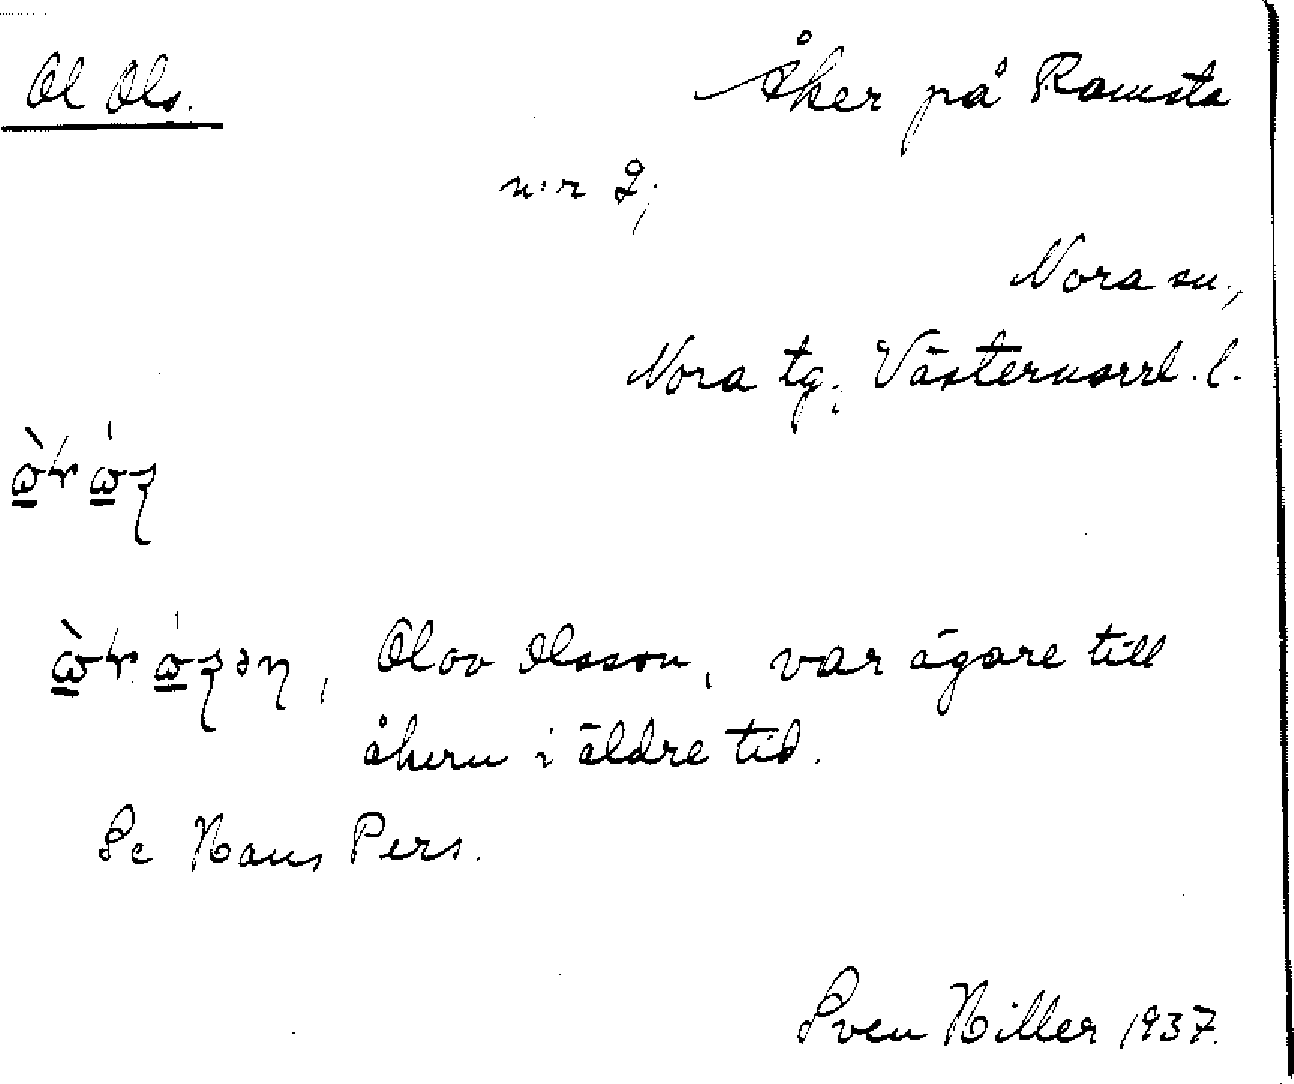 Ol Ols.
Åker på Ramsta
n:r 2,
Nora sn.,
Nora tg., Västernorrl. l.
Olov Olsson, var ägare till
åkern i äldre tid.
Se Hans Pers.
Sven Hiller 1937.